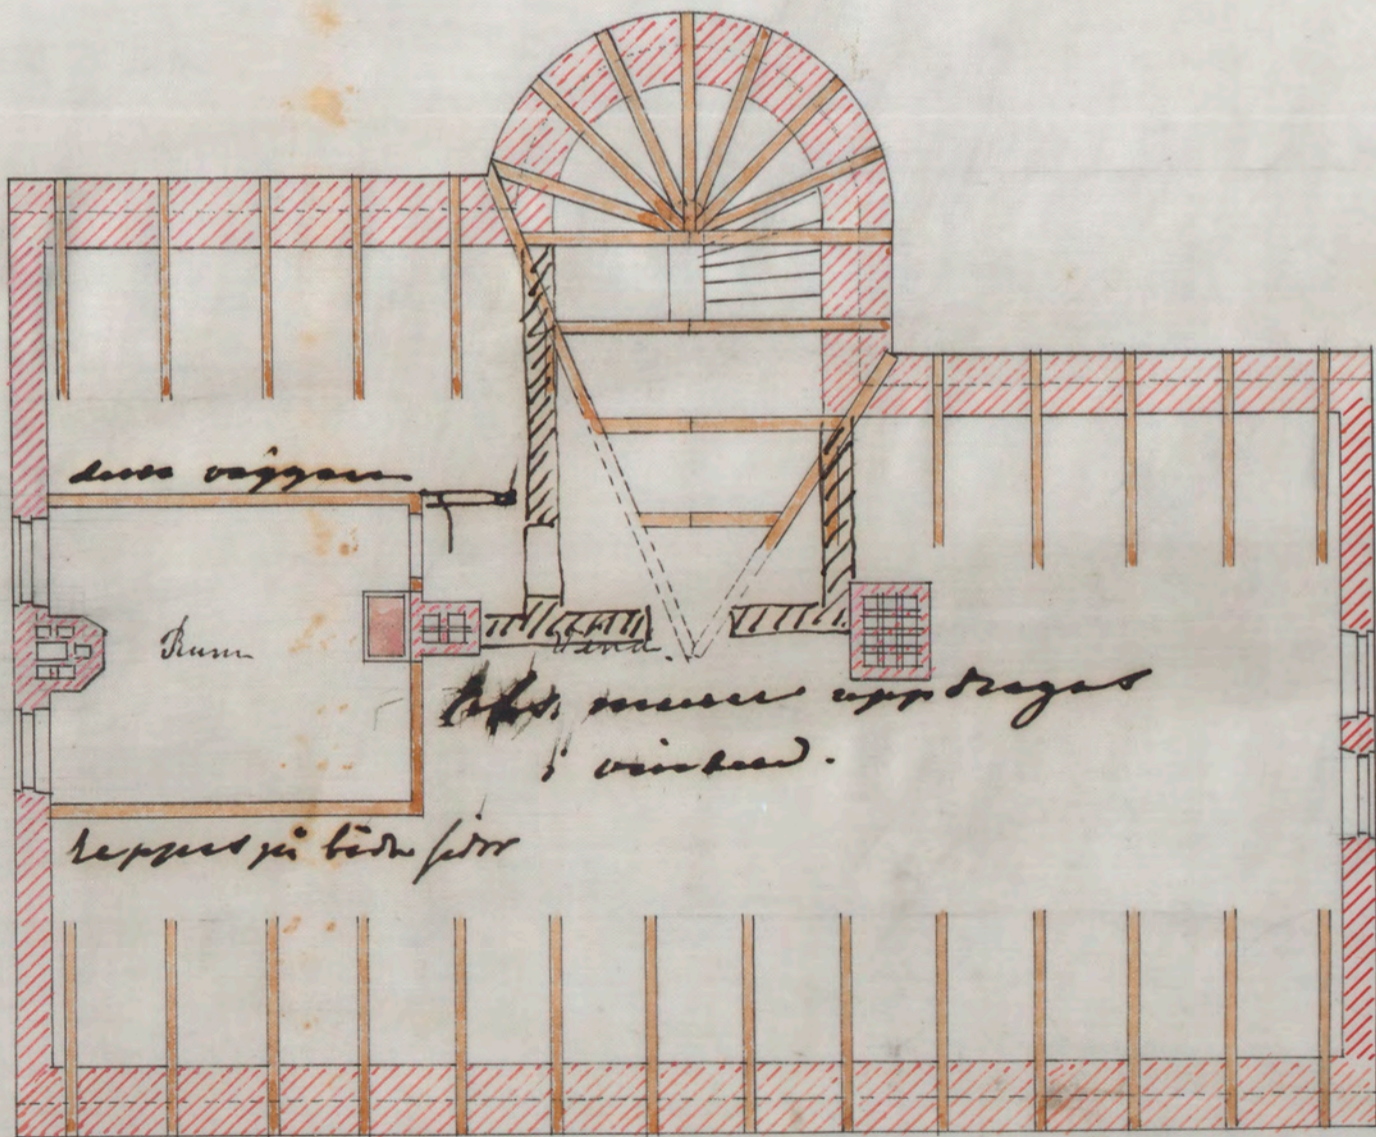 dessa väggar
Rum
Vind.
murar uppdragas
i vinden.
rappas på båda sidor